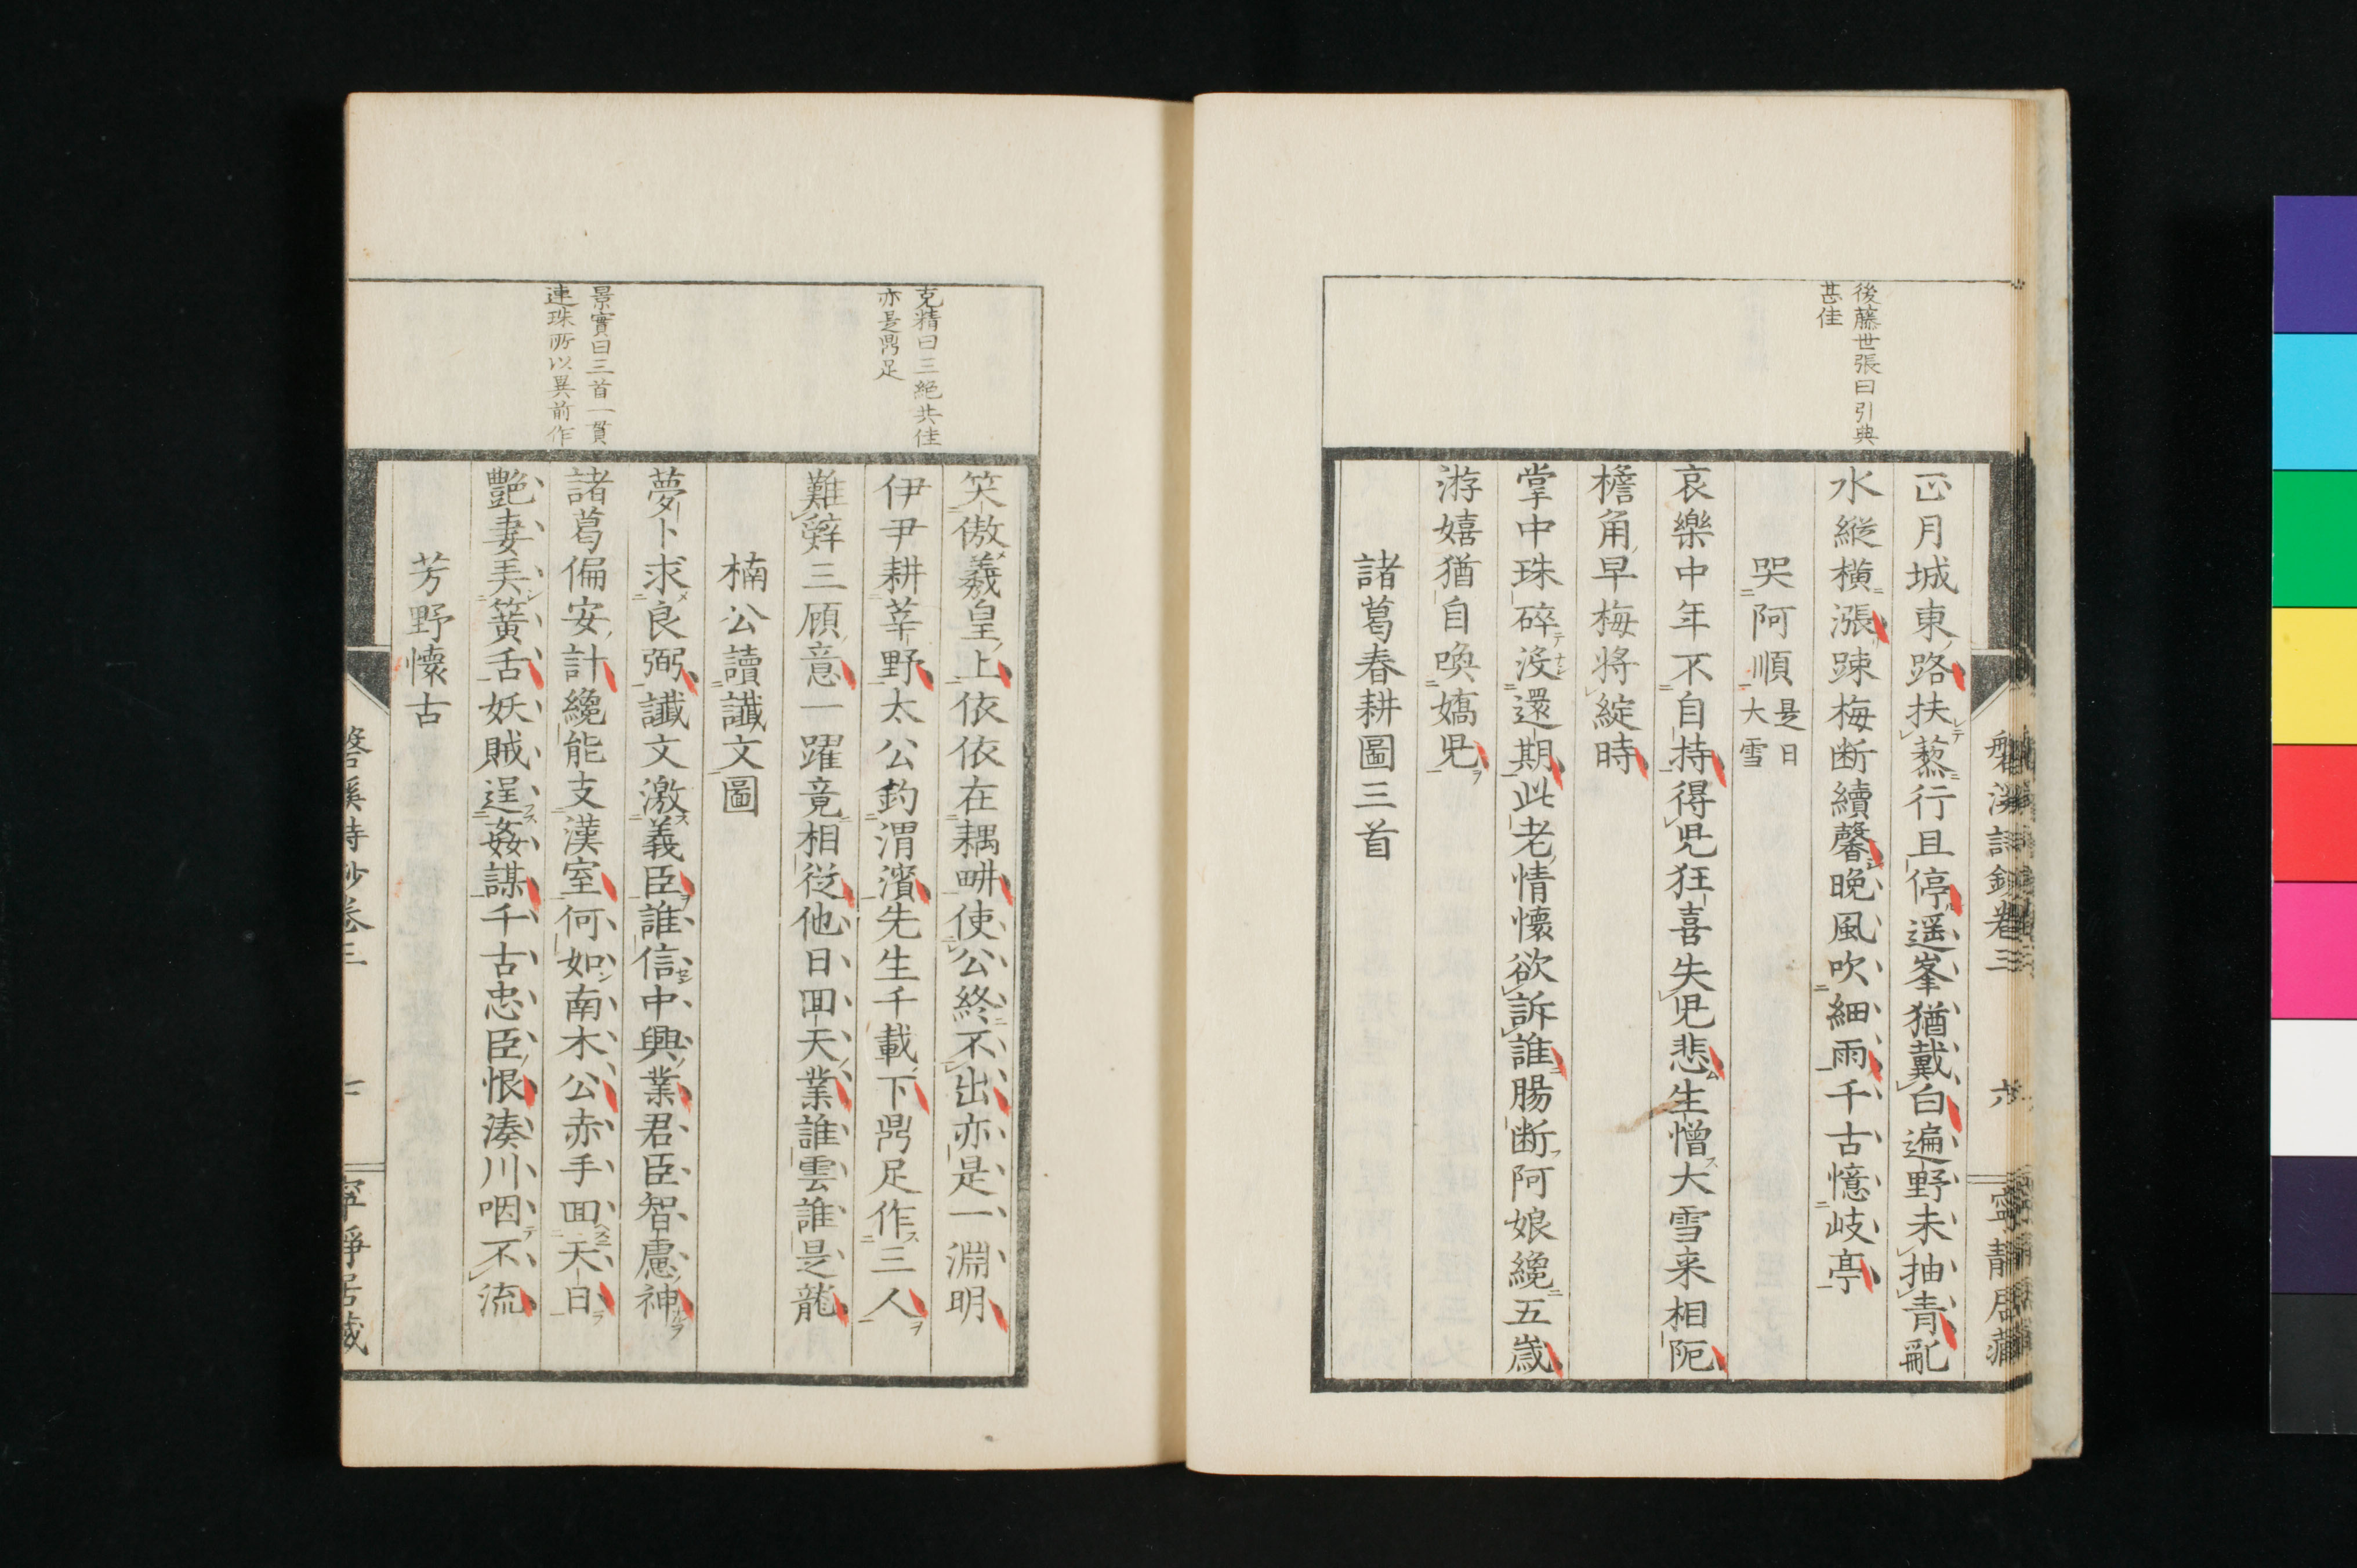 後藤世張曰引典
甚佳
正月城東路扶藜行且停遥峯猶戴白遍野未抽青亂
水縱横漲踈梅断續馨晩風吹細雨千古憶岐亭
哭阿順是日大雪
哀樂中年不自持得児狂喜失児悲生憎大雪来相阨
檐角早梅將綻時
掌中珠碎沒還期此老情懷欲訴誰腸断阿娘纔五歳
游嬉猶自喚嬌児
諸葛春耕圖三首
克精曰三絶共佳
亦是鼎足
景實曰三首一貫
連珠所以異前作
笑傲羲皇上依依在耦畊使公終不出亦是一淵明
伊尹耕莘野太公釣渭濱先生千載下鼎足作三人
難辤三顧意一躍竟相從他日回天業誰雲誰是龍
楠公讀讖文圖
夢卜求良弼讖文激義臣誰信中興業君臣智慮神
諸葛偏安計纔能支漢室何如南木公赤手回天日
艷妻美簧舌妖賊逞姦謀千古忠臣恨湊川咽不流
芳野懷古